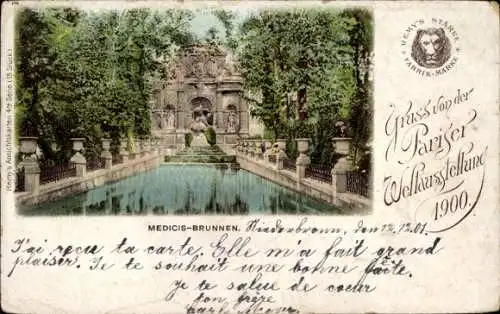 Remy's Ansichtskarten 4te Serie (15 Stück)
REMY'S STÄRKE
FABRIK-MARKE
Gruss von der
Pariser
Weltausstellung
1900.
MEDICIS-BRUNNEN.
Niederbronn, den 12.12.01.
J'ai reçu ta carte. Elle m'a fait grand
plaiser. Je te souhait une bonne fête.
Je te salue de coeur
ton frère